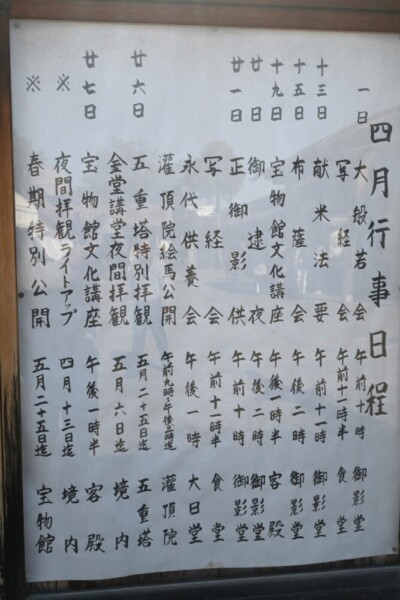 四月行事日程
一日 大般若会 午前十時 御影堂
写経会 午前十一時半 食堂
十三日 献米法要 午前十一時 御影堂
十五日 布薩会 午後二時 御影堂
十九日 宝物館文化講座 午後一時半 客殿
廿日 御逮夜 午後二時 御影堂
廿一日 正御影供 午前十時 御影堂
写経会 午前十一時半 食堂
永代供養会 午後一時 大日堂
灌頂院絵馬公開 午前九時〜午後 灌頂院
廿六日 五重塔特別拝観 五月二十五日迄 五重塔
金堂講堂夜間拝観 五月六日迄 境内
廿七日 宝物館文化講座 午後一時半 客殿
※ 夜間拝観ライトアップ 四月十三日迄 境内
※ 春期特別公開 五月二十五日迄 宝物館